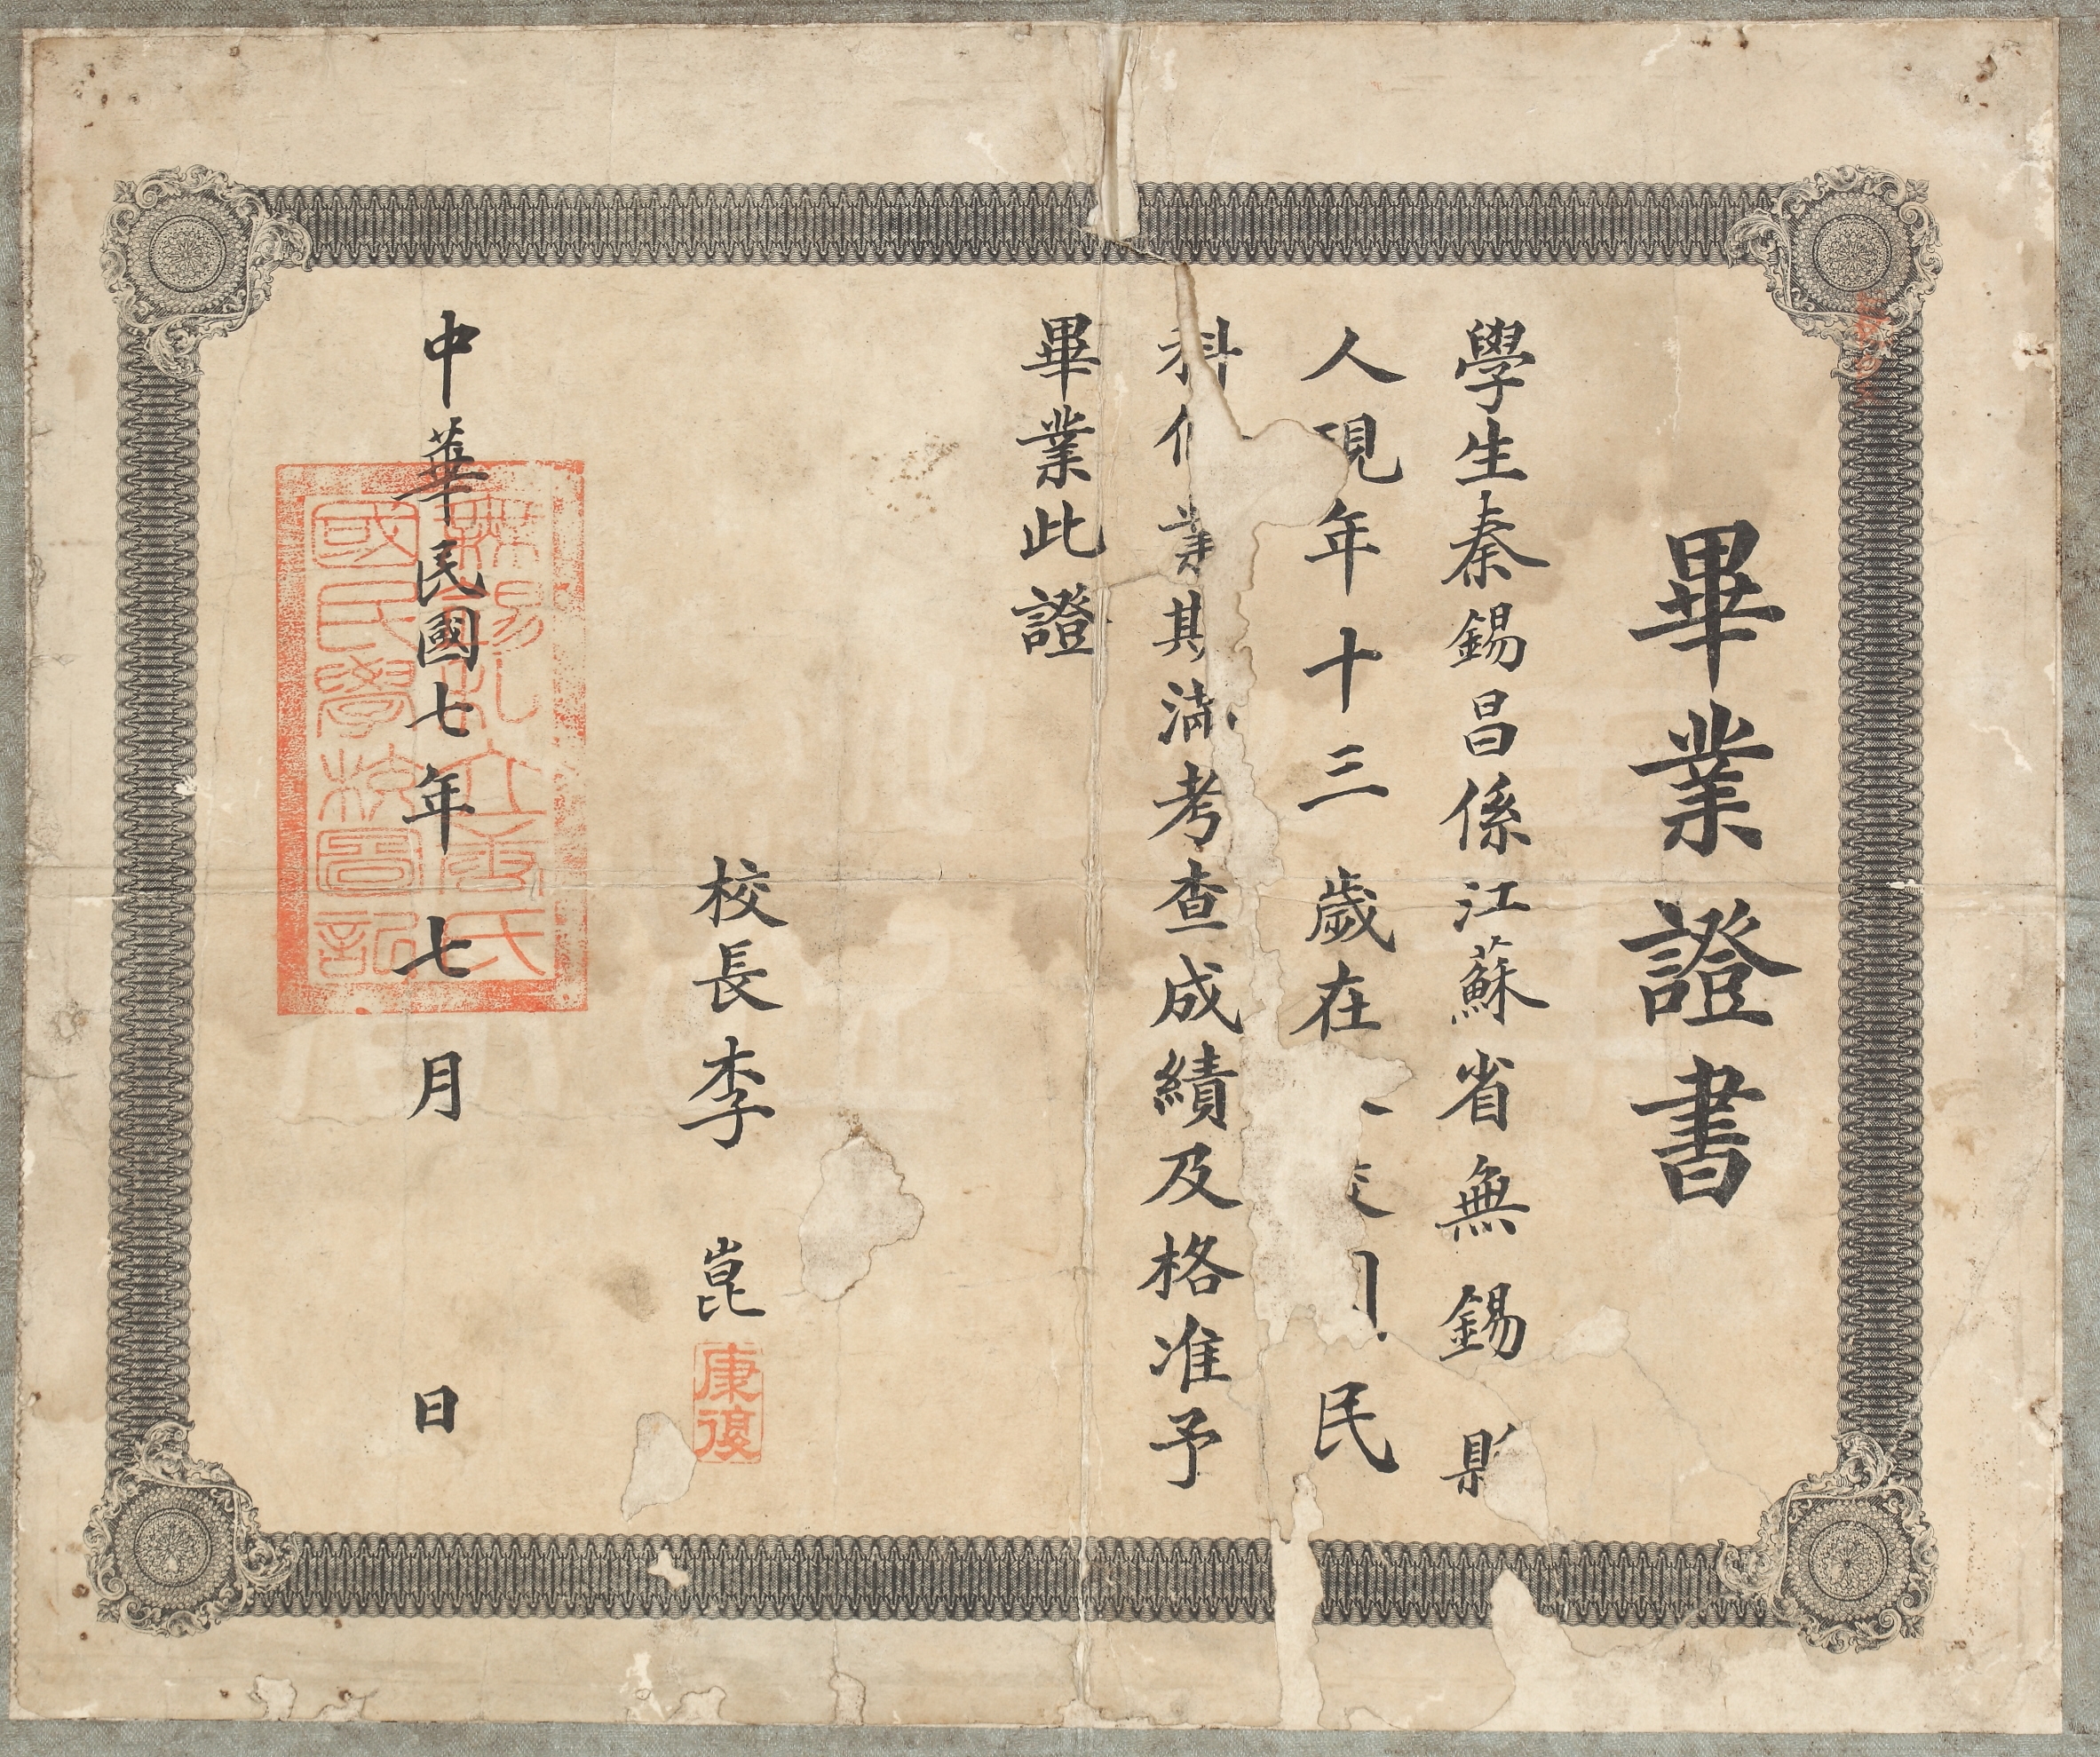 畢業證書
學生秦錫昌係江蘇省無錫縣
人現年十三歲在 校 民
科修業期滿考查成績及格准予
畢業此證
校長李崑
康復
中華民國七年七月 日
無錫私立秦氏
國民學校圖記